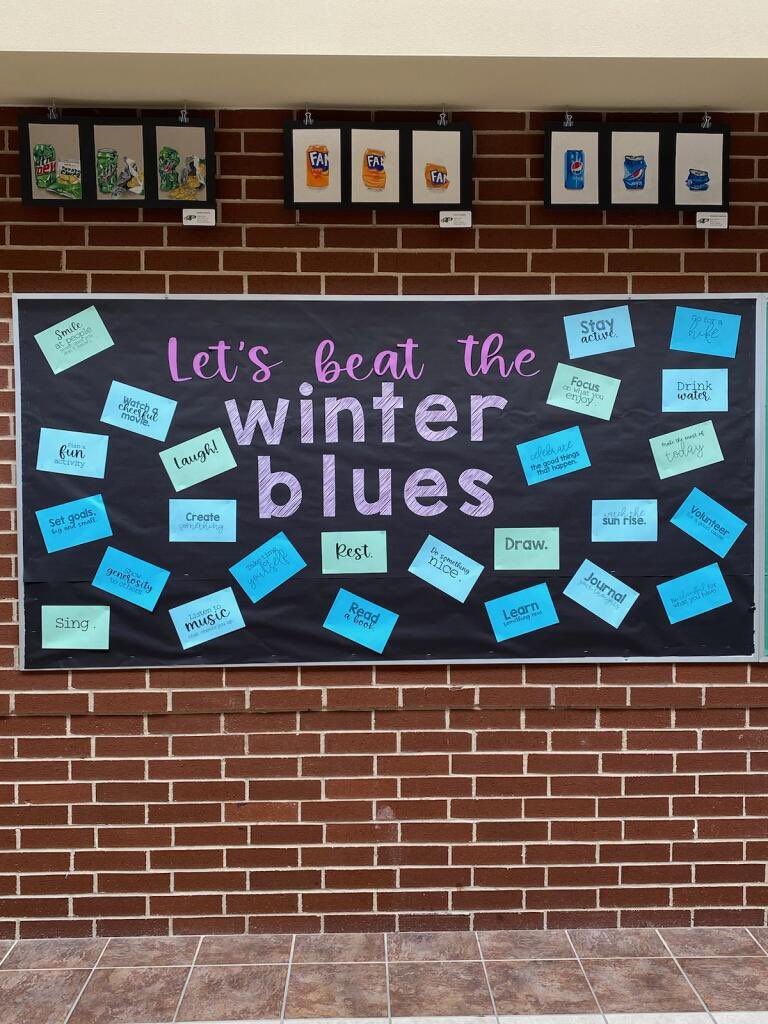 FAN
FAN
FAN
pepsi
Let's beat the
winter
blues
Smile
at people
Watch a
cheerful
movie.
Plan a
fun
activity.
Laugh!
Set goals,
big and small.
Create
something
Show
generosity
to others.
Take time
for
yourself
Sing.
Listen to
music
that cheers you up.
Rest.
Read
a book.
Do something
nice.
Draw.
Learn
something new.
Stay
active.
go for a
hike
Focus
on what you
enjoy.
Drink
water.
celebrate
the good things
that happen.
make the most of
today
watch the
sun rise.
Volunteer
for a good cause.
Journal
your thoughts.
Be thankful for
what you have.